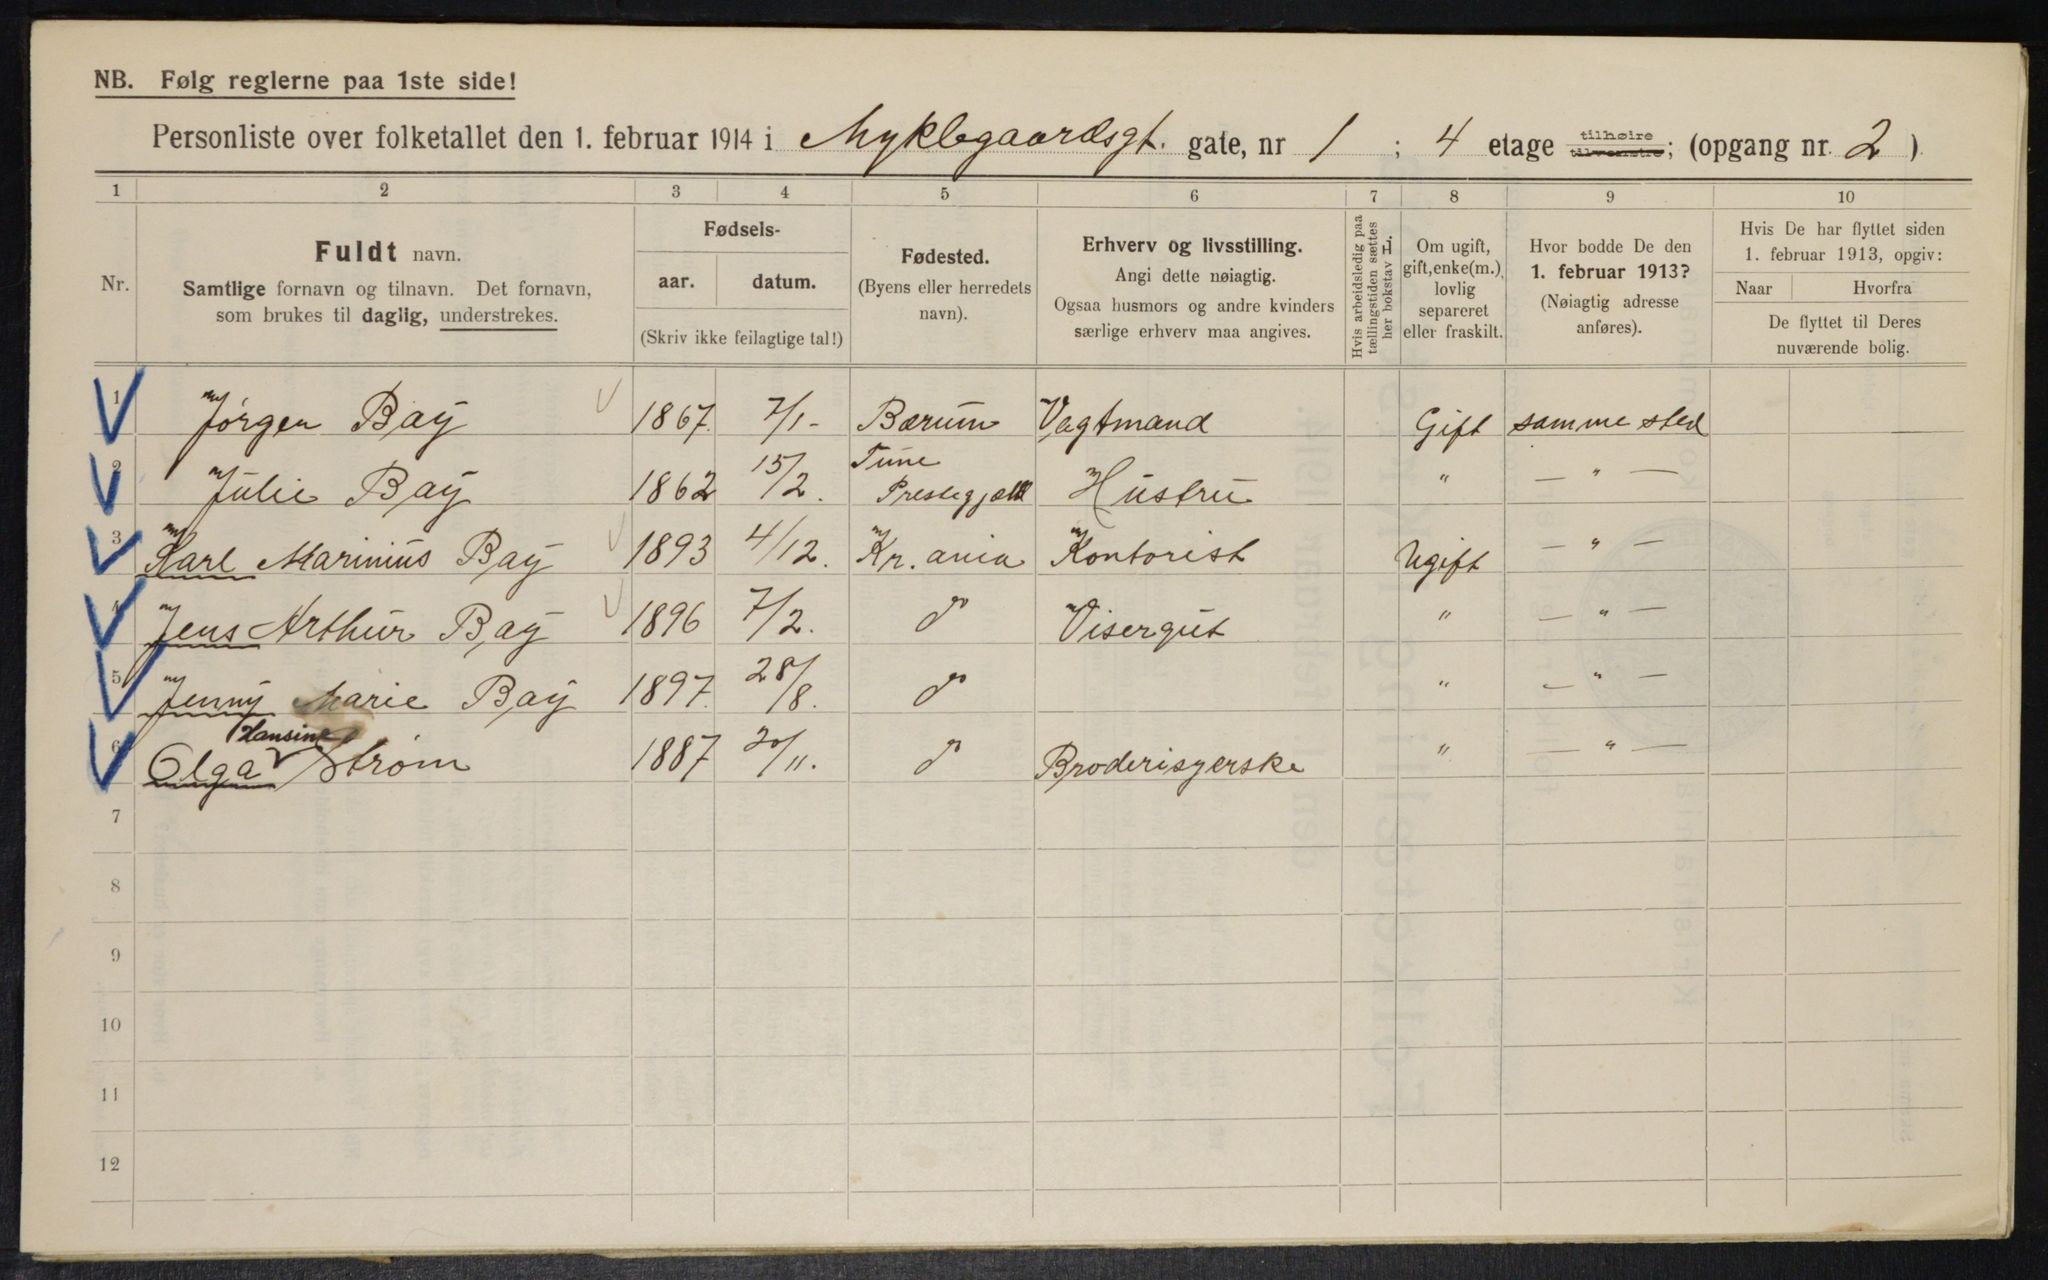 NB. Følg reglerne paa 1ste side!
Personliste over folketallet den 1. februar 1914 i Myklegaardsgt. gate, nr 1 ; 4 etage tilhøire tilvenstre; (opgang nr. 2 )
1 2 3 4 5 6 7 8 9 10
Nr.
Fuldt navn.
Samtlige fornavn og tilnavn. Det fornavn,
som brukes til daglig, understrekes.
Fødsels-
aar. datum.
(Skriv ikke feilagtige tal!)
Fødested.
(Byens eller herredets
navn).
Erhverv og livsstilling.
Angi dette nøiagtig.
Ogsaa husmors og andre kvinders
særlige erhverv maa angives.
Hvis arbeidsledig paa
tællingstiden sættes
her bokstav L.
Om ugift,
gift, enke(m.),
lovlig
separeret
eller fraskilt.
Hvor bodde De den
1. februar 1913?
(Nøiagtig adresse
anføres).
Hvis De har flyttet siden
1. februar 1913, opgiv:
Naar Hvorfra
De flyttet til Deres
nuværende bolig.
1 Jørgen Bay 1867. 7/1- Bærum Vagtmand Gift samme sted
2 Julie Bay 1862 15/2. Tune Prestegjæld Hustru " — " —
3 Karl Marinius Bay 1893 4/12. Kr.ania Kontorist Ugift — " —
4 Jens Arthur Bay 1896 7/2. do Visergut " — " —
5 Jenny Marie Bay 1897. 28/8. do " — " —
Hansine
6 Olga Strøm 1887 20/11. do Broderisyerske " — " —
7
8
9
10
11
12